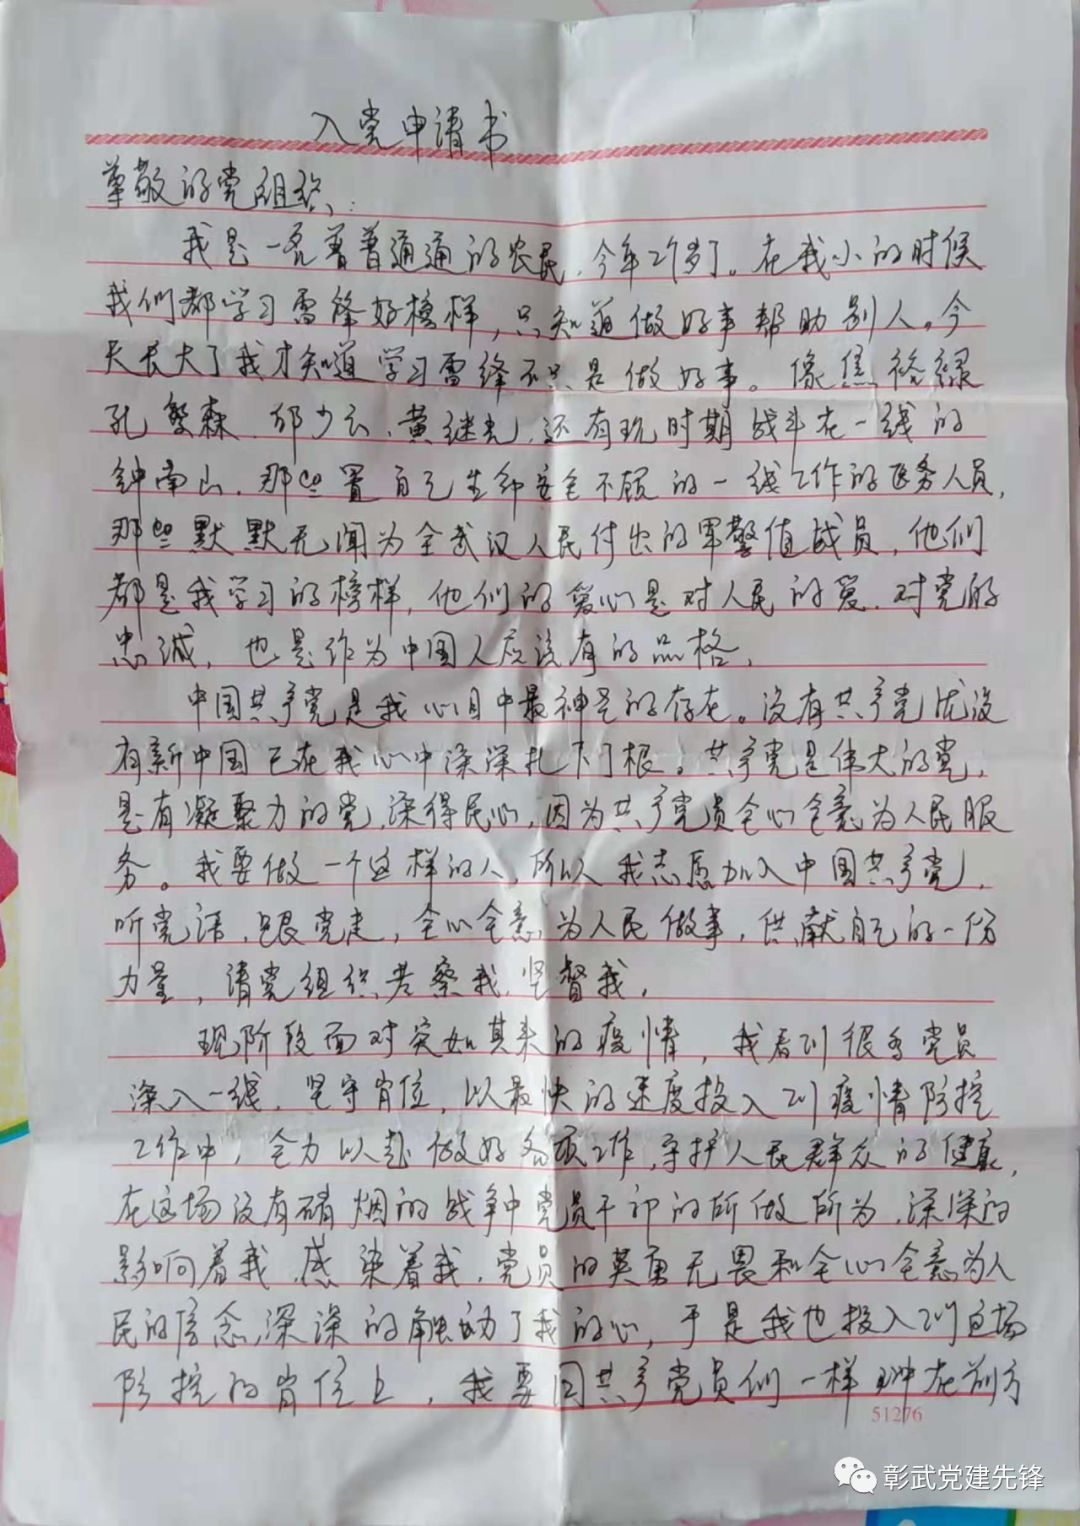 入党申请书
尊敬的党组织:
我是一名普普通通的农民,今年29岁了。在我小的时候
我们都学习雷锋好榜样,只知道做好事帮助别人。今
天长大了我才知道学习雷锋不只是做好事。像焦裕禄
孔繁森、邱少云、黄继光,还有现时期战斗在一线的
钟南山,那些置自己生命安全不顾的一线工作的医务人员,
那些默默无闻为全武汉人民付出的军警值战员,他们
都是我学习的榜样,他们的爱心是对人民的爱,对党的
忠诚,也是作为中国人应该有的品格,
中国共产党是我心目中最神圣的存在。没有共产党就没
有新中国已在我心中深深扎下了根。共产党是伟大的党,
是有凝聚力的党,深得民心,因为共产党员全心全意为人民服
务。我要做一个这样的人,所以我志愿加入中国共产党,
听党话,跟党走,全心全意为人民做事,供献自己的一份
力量,请党组织考察我,坚督我,
现阶段面对突如其来的疫情,我看到很多党员
深入一线,坚守岗位,以最快的速度投入到疫情防控
工作中,全力以赴做好各项工作,守护人民群众的健康,
在这场没有硝烟的战争中党员干部的所做所为,深深的
影响着我,感染着我,党员的英勇无畏和全心全意为人
民的信念,深深的触动了我的心,于是我也投入到这场
防控的岗位上,我要同共产党员们一样冲在前方
51276
彰武党建先锋